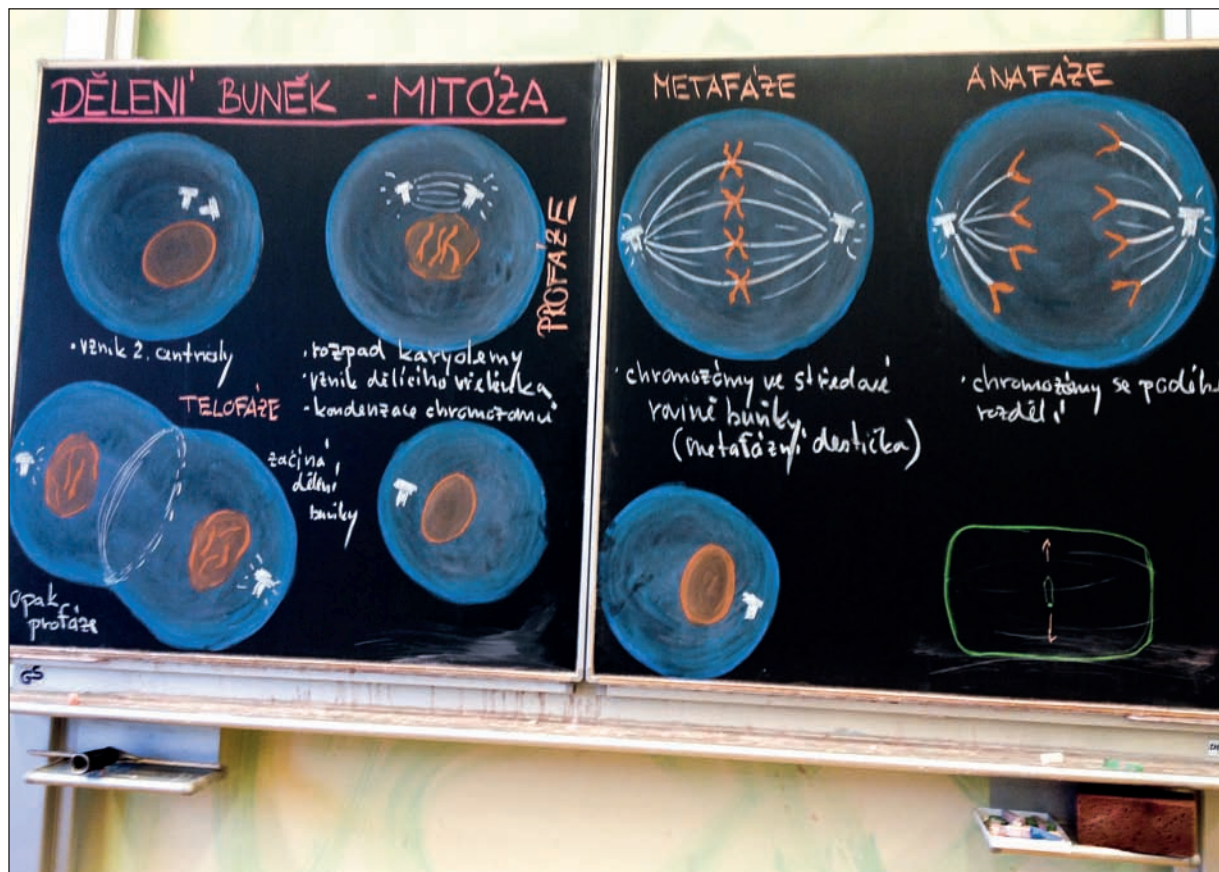 DĚLENÍ BUNĚK - MITÓZA
• vznik 2. centrioly
PROFÁZE
• rozpad karyolemy
• vznik dělícího vřeténka
• kondenzace chromozomů
TELOFÁZE
začíná
dělení
buňky
Opak
profáze
METAFÁZE
• chromozómy ve středové
rovině buňky
(metafázní destička)
ANAFÁZE
• chromozómy se podél
rozdělí
GS